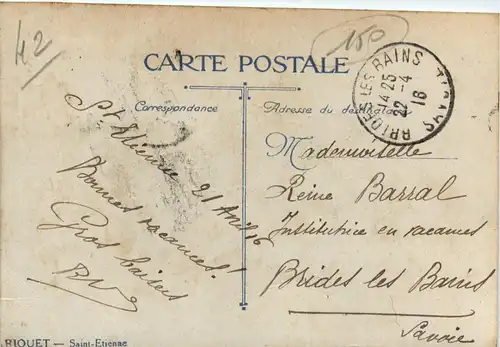 42
150
CARTE POSTALE
BRIDES LES BAINS
14 25
22 -4
16
Correspondance
Adresse du destinataire
St Etienne 21 Avril 16
Bonnes vacances!
Gros baisers
Mademoiselle
Reine Barral
Institutrice en vacances
Brides les Bains
Savoie
RIQUET — Saint-Etienne